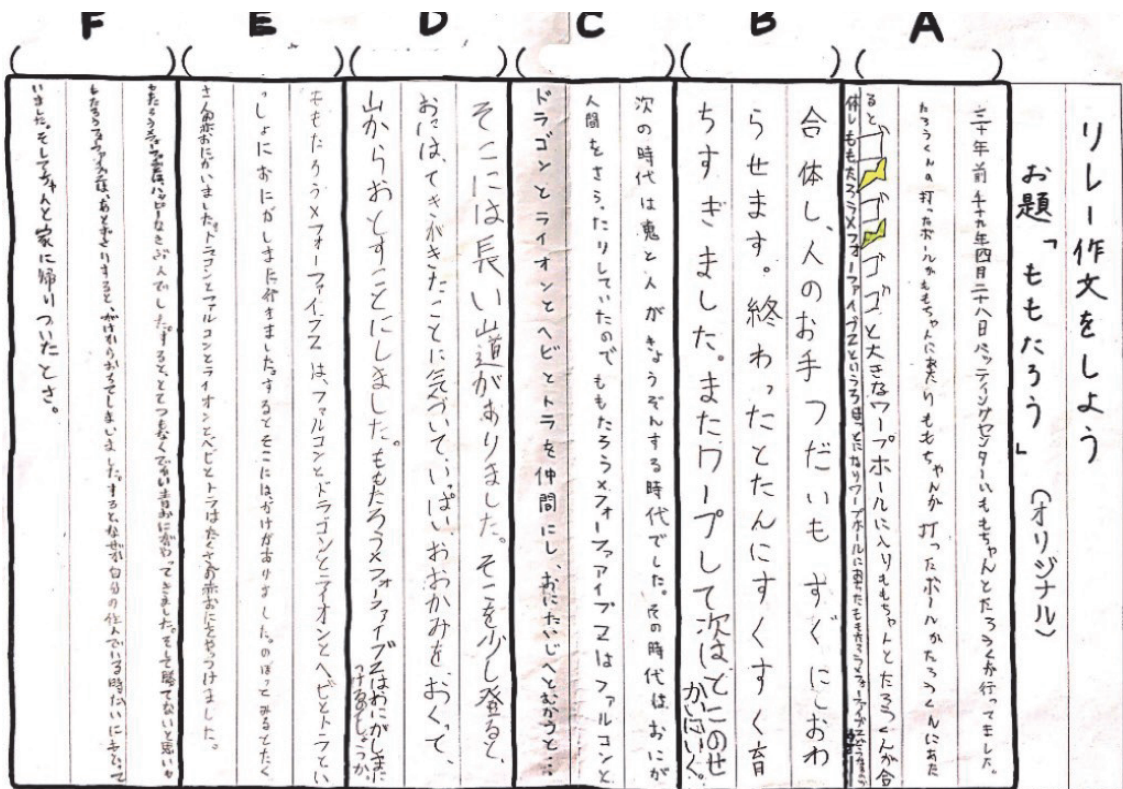 リレー作文をしよう
お題「ももたろう」(オリジナル)
A
三十年前 千十九年四月二十八日バッティングセンターにももちゃんとたろうくんが行ってました。
たろうくんの打ったボールがももちゃんにあたりももちゃんが打ったボールがたろうくんにあた
ると ゴゴゴゴゴ と大きなワープホールに入りももちゃんとたろうくんが合
体しももたろう×フォーファイブZというろぼっとになりワープホールに
B
合体し、人のお手つだいもすぐにおわ
らせます。終わったとたんにすくすく育
ちすぎました。またワープして次はどこのせ
かいにいく。
C
次の時代は鬼と人がきょうぞんする時代でした。その時代は、おにが
人間をさらったりしていたので ももたろう×フォーファイブZはファルコンと
ドラゴンとライオンとヘビとトラを仲間にし、おにたいじへとむかうと…
D
そこには長い山道がありました。そこを少し登ると、
おには、てきがきたことに気づいて、いっぱい、おおかみを、おくって、
山からおとすことにしました。ももたろう×フォーファイブZはおにがしまに
つけるのでしょうか
E
ももたろう×フォーファイブZは、ファルコンとドラゴンとライオンとヘビとトラとい
っしょにおにがしまに行きました。するとそこには、がけがありました。のぼってみるとたく
さん赤おにがいました。ドラゴンとファルコンとライオンとヘビとトラはたくさんの赤おにをやっつけました。
F
ももたろう×フォーファイブZは、ハッピーなきぶんでした。すると、とてつもなくでかい青おにがやってきました。そして勝てないと思いも
ももたろう×フォーファイブZは、あとずさりすると、がけからおちてしまいました。すると、なぜか自分の住んでいる時だいにもどって
いました。そしてちゃんと家に帰りついたとさ。